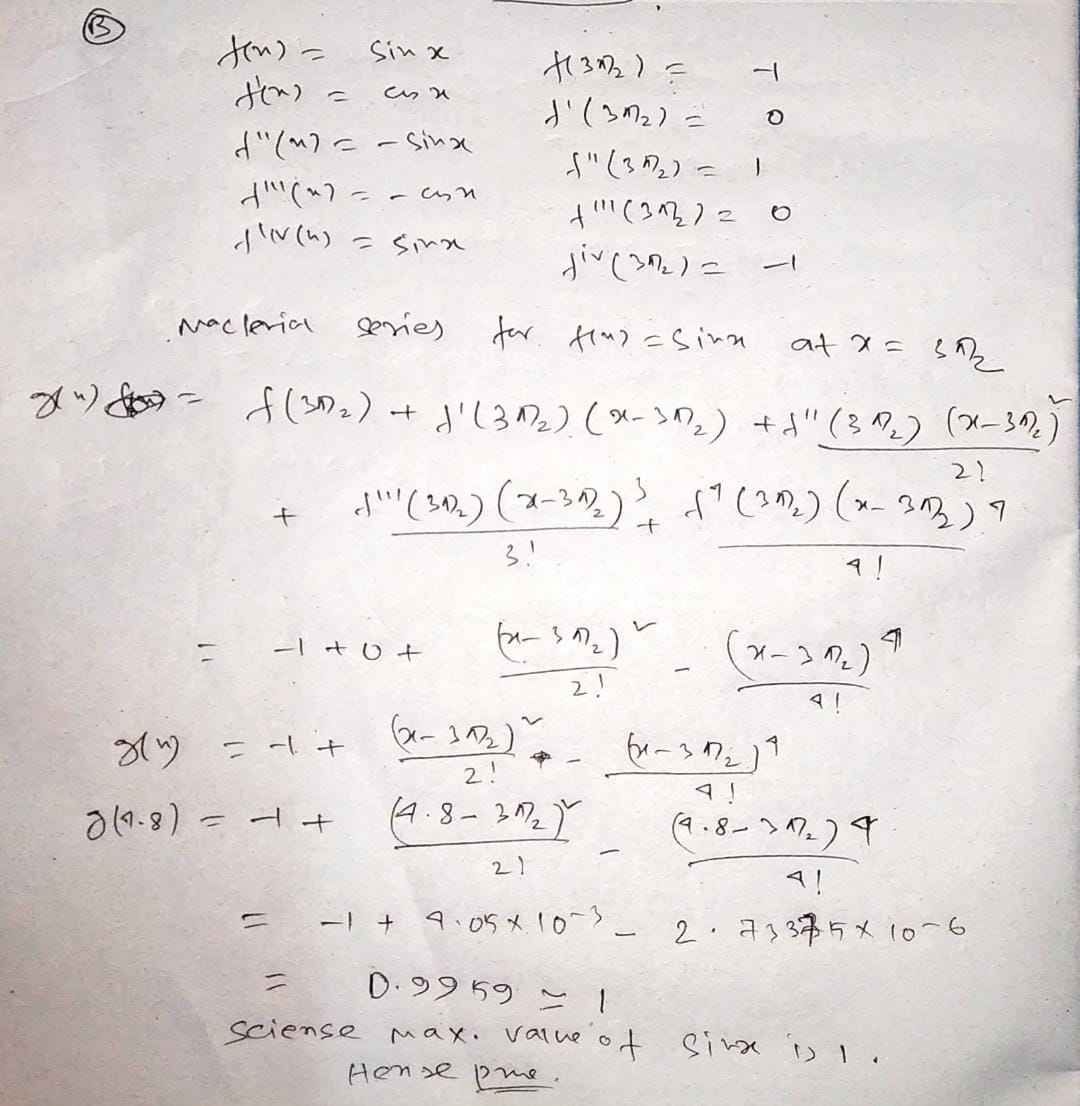 B
f(x) = sin x f(3π/2) = -1
f'(x) = cos x f'(3π/2) = 0
f''(x) = - sin x f''(3π/2) = 1
f'''(x) = - cos x f'''(3π/2) = 0
f^iv(x) = sin x f^iv(3π/2) = -1
Maclerial series for f(x) = sin x at x = 3π/2
g(x) = f(3π/2) + f'(3π/2) (x-3π/2) + f''(3π/2) (x-3π/2)^2 / 2!
+ f'''(3π/2) (x-3π/2)^3 / 3! + f^4 (3π/2) (x-3π/2)^4 / 4!
= -1 + 0 + (x-3π/2)^2 / 2! - (x-3π/2)^4 / 4!
g(x) = -1 + (x-3π/2)^2 / 2! - (x-3π/2)^4 / 4!
g(4.8) = -1 + (4.8-3π/2)^2 / 2! - (4.8-3π/2)^4 / 4!
= -1 + 4.05 x 10^-3 - 2.73375 x 10^-6
= 0.9959 ≃ 1
sciense max. value of sin x is 1.
Hense